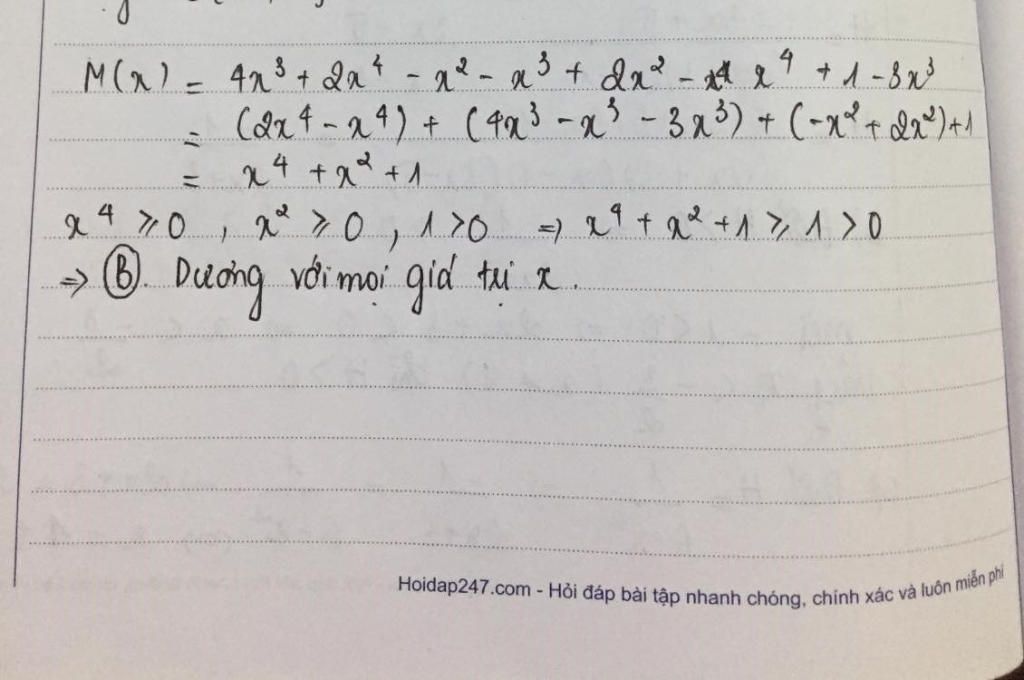 M(x) = 4x³ + 2x⁴ - x² - x³ + 2x² - x⁴ + 1 - 3x³
= (2x⁴ - x⁴) + (4x³ - x³ - 3x³) + (-x² + 2x²) + 1
= x⁴ + x² + 1
x⁴ ⩾ 0 , x² ⩾ 0 , 1 > 0 => x⁴ + x² + 1 ⩾ 1 > 0
=> B. Dương với mọi giá trị x.
Hoidap247.com - Hỏi đáp bài tập nhanh chóng, chính xác và luôn miễn phí